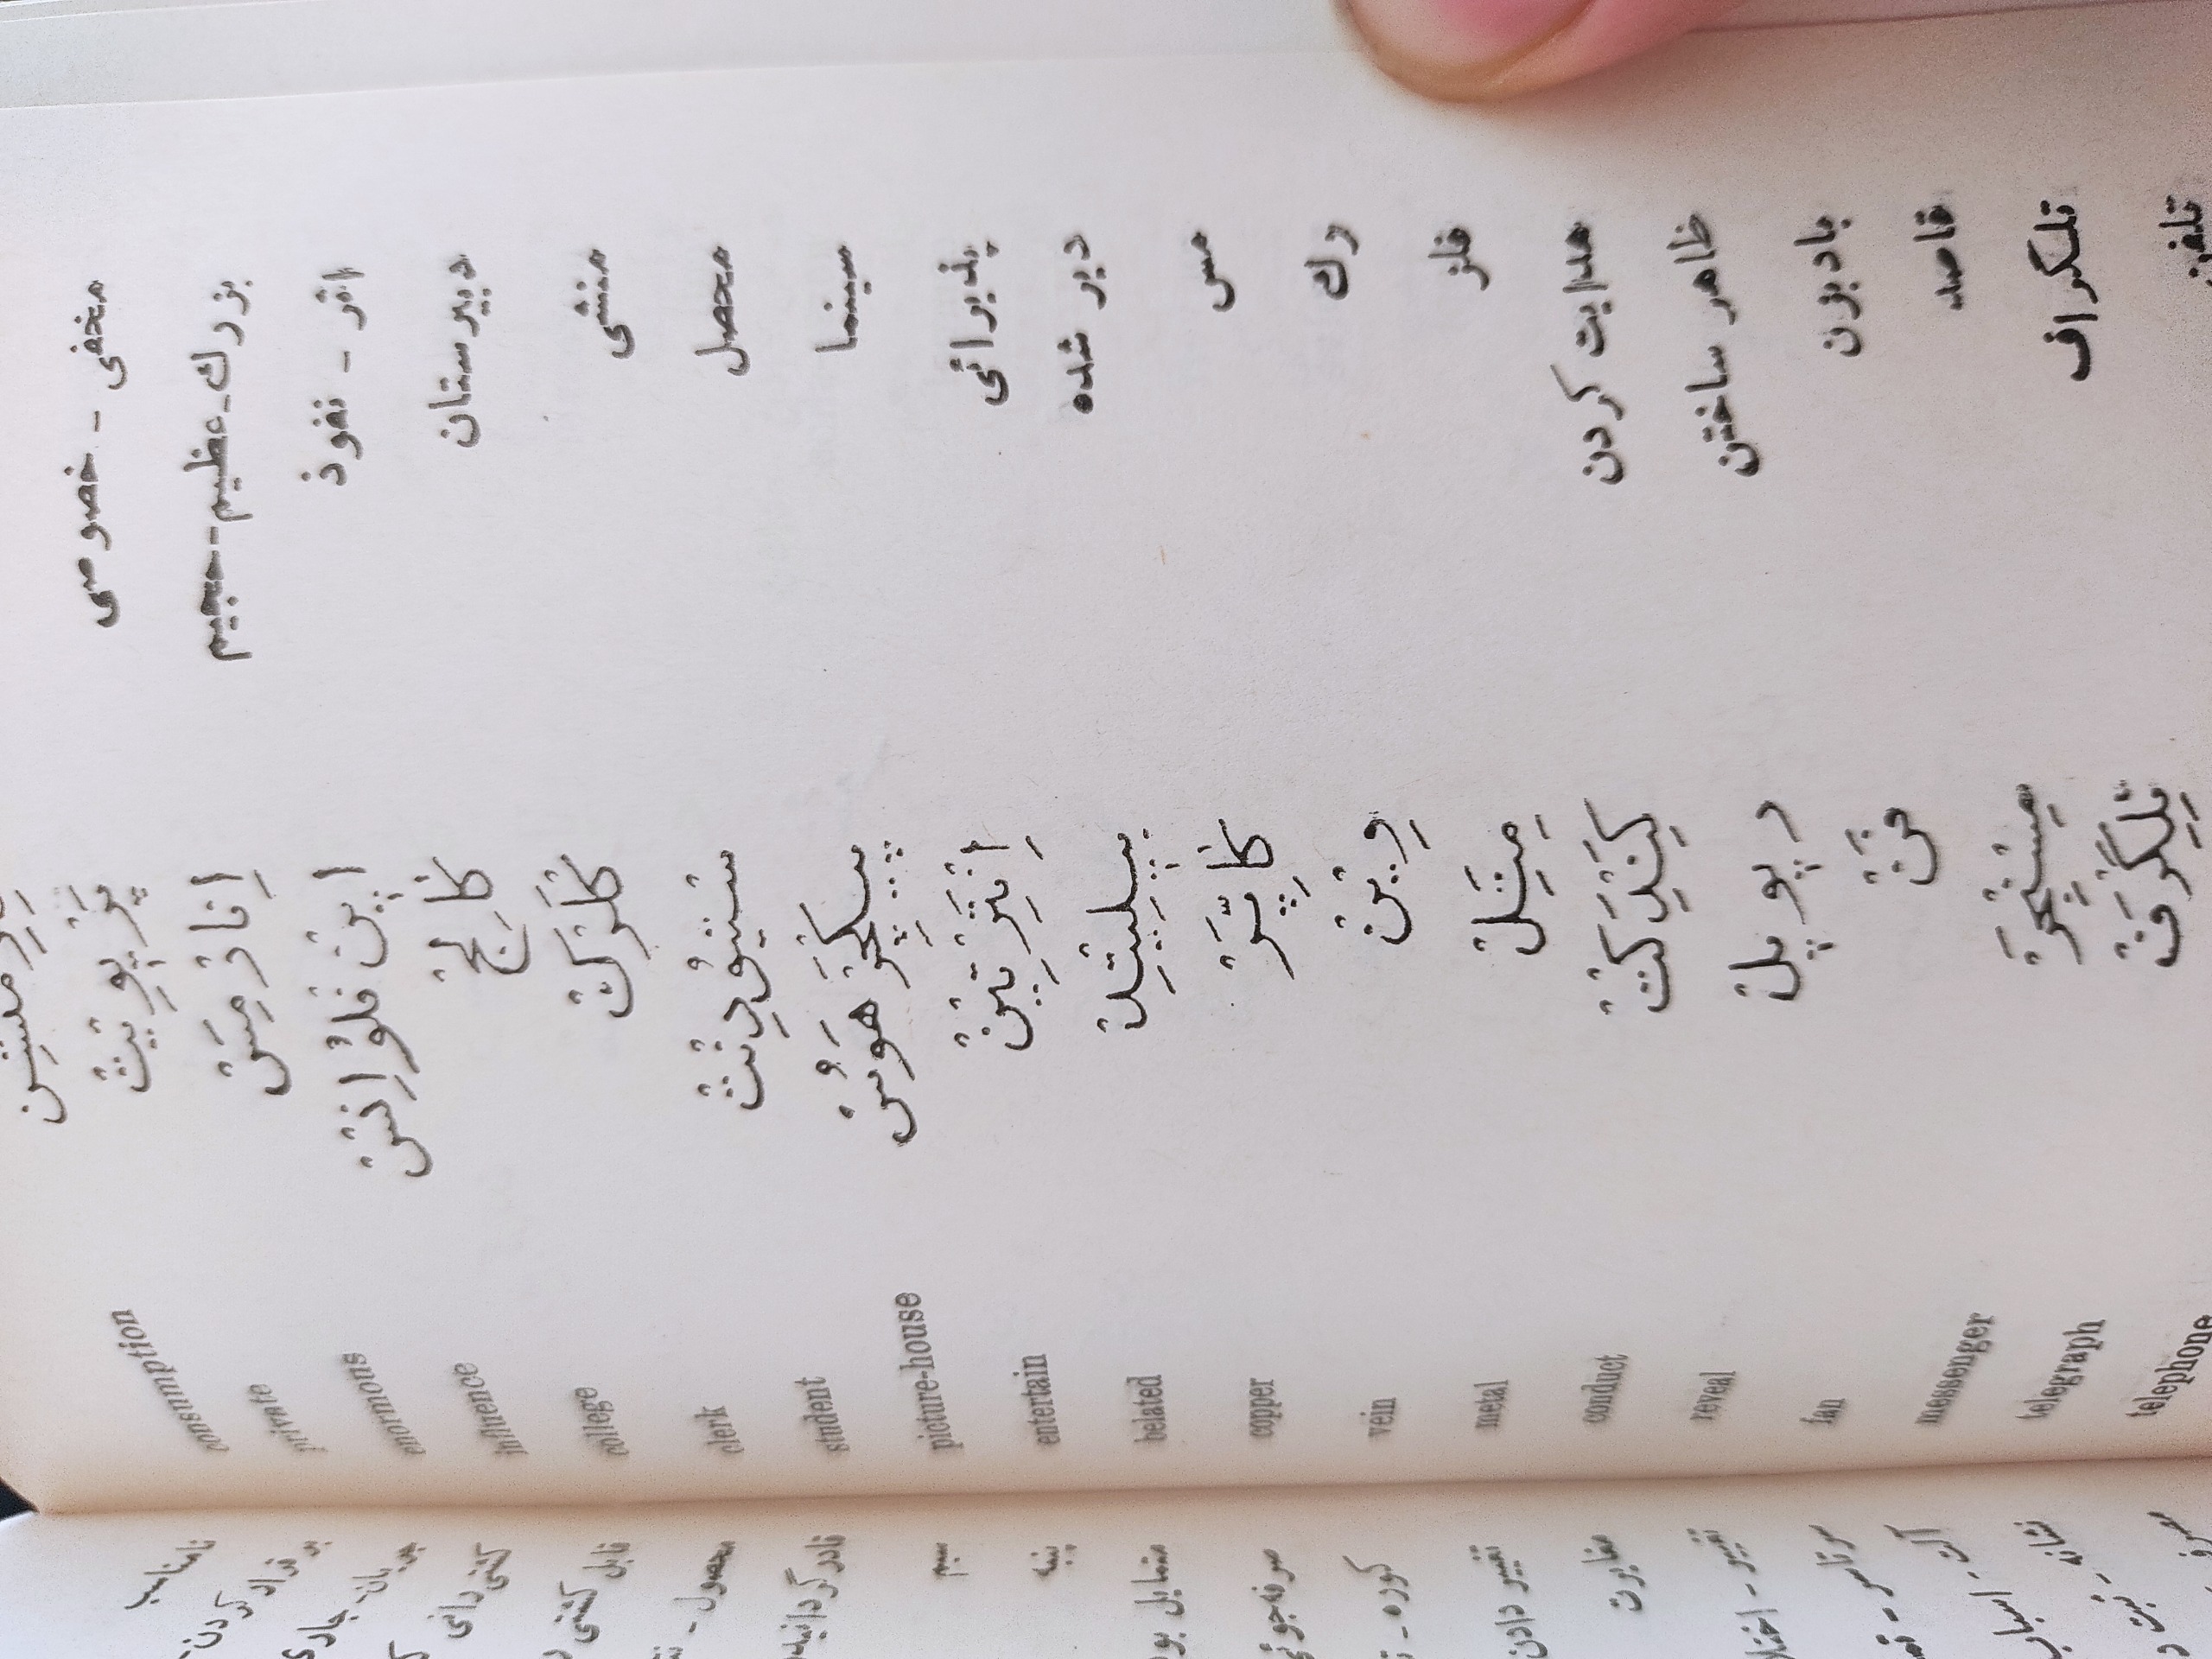 consumption
private پرَیویت مخفی - خصوصی
enormous اِنازمِس بزرك-عظیم-حجیم
influence این فلوُاِنس اثر - نفوذ
college کالِج دبیرستان
clerk کلَرك منشی
student ستیوُدِنت محصل
picture-house پیکچَرهَوُس سینما
entertain اِنتَرتین پذیرائی
belated بیلیتِد دیر شده
copper کاپَّر مس
vein وِین رك
metal مِتَل فلز
conduct کَندَکت هدایت کردن
reveal ریویل ظاهر ساختن
fan فَن بادبزن
messenger مِسِنجَر قاصد
telegraph تِلِگرَف تلکراف
telephone تلفن
نامناسب
بر قراد کردن
جریان - جاری
کشتی رانی
قابل کشتی
محصول -
نادر گردانید
سیم
پنبه
متمایل بود
صرفه جوئی
کوره -
تغییر دادن
مغایرت
تغییر - اختلا
سرتاسر -
آلت - اسباب
نشانه - ثبت